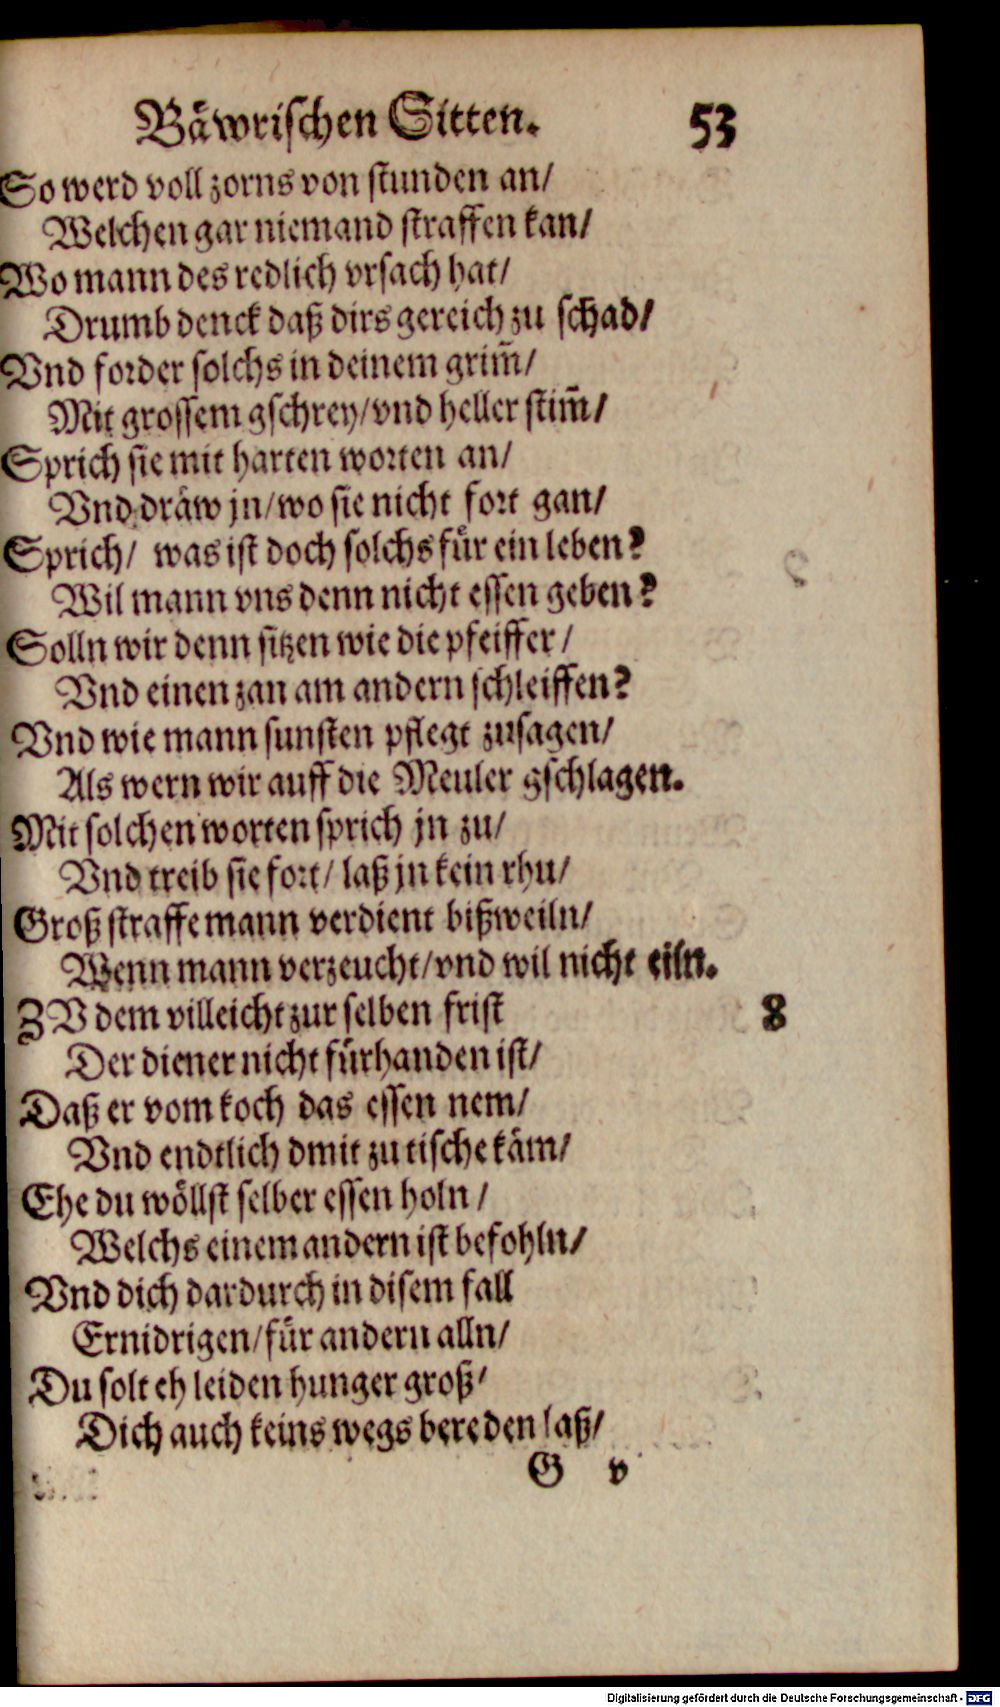 Bäwrischen Sitten. 53
So werd voll zorns von stunden an/
Welchen gar niemand straffen kan/
Wo mann des redlich vrsach hat/
Drumb denck daß dirs gereich zu schad/
Vnd forder solchs in deinem grim̃/
Mit grossem gschrey/vnd heller stim̃/
Sprich sie mit harten worten an/
Vnd dräw jn/wo sie nicht fort gan/
Sprich/ was ist doch solchs für ein leben?
Wil mann vns denn nicht essen geben?
Solln wir denn sitzen wie die pfeiffer/
Vnd einen zan am andern schleiffen?
Vnd wie mann sunsten pflegt zusagen/
Als wern wir auff die Meuler gschlagen.
Mit solchen worten sprich jn zu/
Vnd treib sie fort/ laß jn kein rhu/
Groß straffe mann verdient bißweiln/
Wenn mann verzeucht/vnd wil nicht eiln.
ZV dem villeicht zur selben frist 8
Der diener nicht fürhanden ist/
Daß er vom koch das essen nem/
Vnd endtlich dmit zu tische käm/
Ehe du wöllst selber essen holn/
Welchs einem andern ist befohln/
Vnd dich dardurch in disem fall
Ernidrigen/für andern alln/
Du solt eh leiden hunger groß/
Dich auch keins wegs bereden laß/
G v
Digitalisierung gefördert durch die Deutsche Forschungsgemeinschaft - DFG